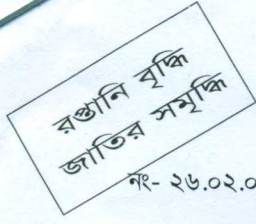 রপ্তানি বৃদ্ধি
জাতির সমৃদ্ধি
নং- ২৬.০২.০